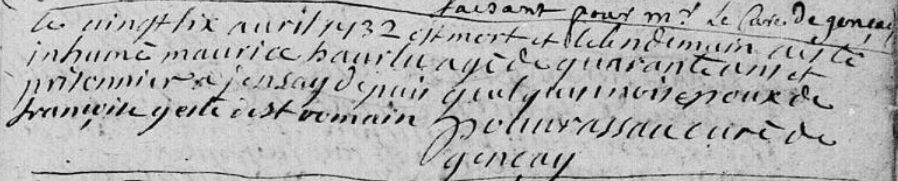 faisant pour mr. Le Curé de gençay
le vingt six avril 1732 est mort et le lendemain a este
inhumé maurice agé de quarante ans et
prisonnier a jensay depuis quelques mois epoux de
françoise de st romain
curé de
gençay